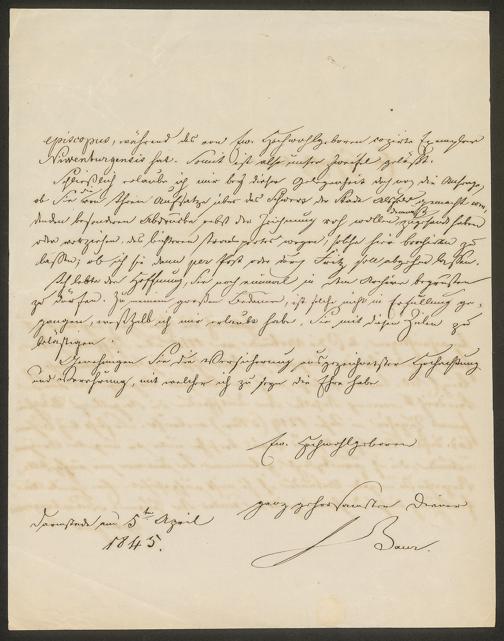 episcopus, während das von Ew. Hochwohlgeboren copirte Exemplar
Nuwenburgensis hat. Somit ist also unser Zweifel gelößt.
Schließlich erlaube ich mir bei dieser Gelegenheit doch noch die Anfrage,
ob Sie die von Ihrem Aufsatze über das Schwert der Stadt gemacht
besonderen Abdrücke nebst der Zeichnung noch wollen zugesand haben
oder vorziehen, des leichteren transportes wegen, solche hier brochiren zu
lassen; ob ich sie dann per Post oder durch Fritz soll abgehen lassen.
Ich lebte der Hoffnung, Sie noch einmal in dem Archive begrüßen
zu dürfen. Zu meinem großen Bedauern, ist solche nicht in Erfüllung ge-
gangen, weßhalb ich mir erlaubt habe, Sie mit diesen Zeilen zu
belästigen.
Genehmigen Sie die Versicherung ausgezeichnetster Hochachtung
und Verehrung, mit welcher ich zu seyn die Ehre habe
Ew. Hochwohlgeboren
ganz gehorsamster Diener
Baur.
Darmstadt am 5ten April
1845.